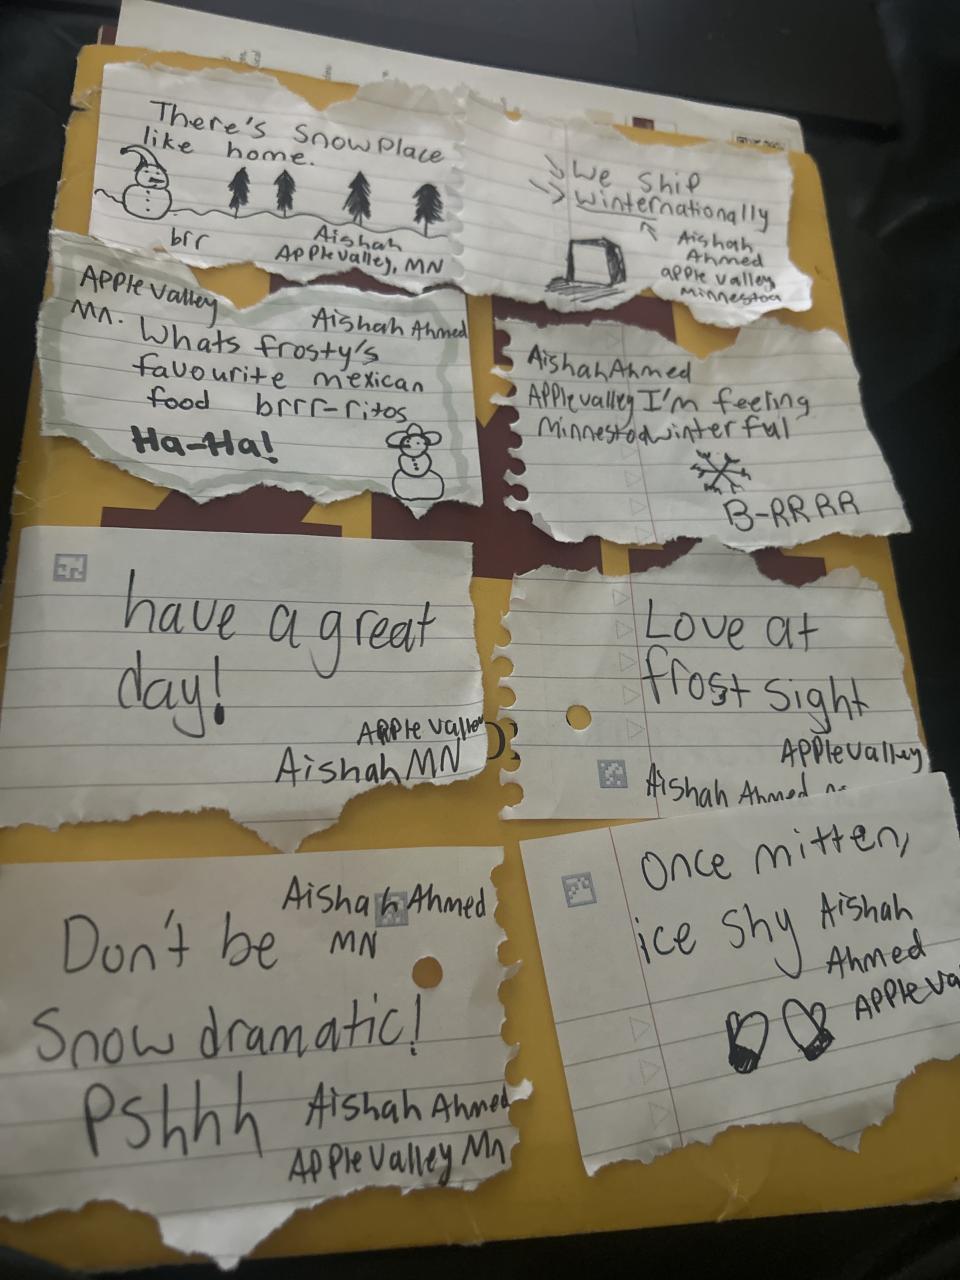 There's Snowplace
like home.
brr
Aishah
Apple valley, MN
We ship
winternationally
Aishah
Ahmed
apple valley
Minnestoa
Apple valley
Mn.
Aishah Ahmed
Whats frosty's
favourite mexican
food brrr-ritos
Ha-Ha!
Aishah Ahmed
Apple valley I'm feeling
Minnestoa winterful
B-RRRR
have a great
day!
Apple valley
Aishah MN
Love at
frost sight
Apple valley
Aishah Ahmed
Aishah Ahmed
Don't be MN
Snow dramatic!
Pshhh Aishah Ahmed
Apple valley Mn
Once mitten,
ice shy Aishah
Ahmed
Apple va